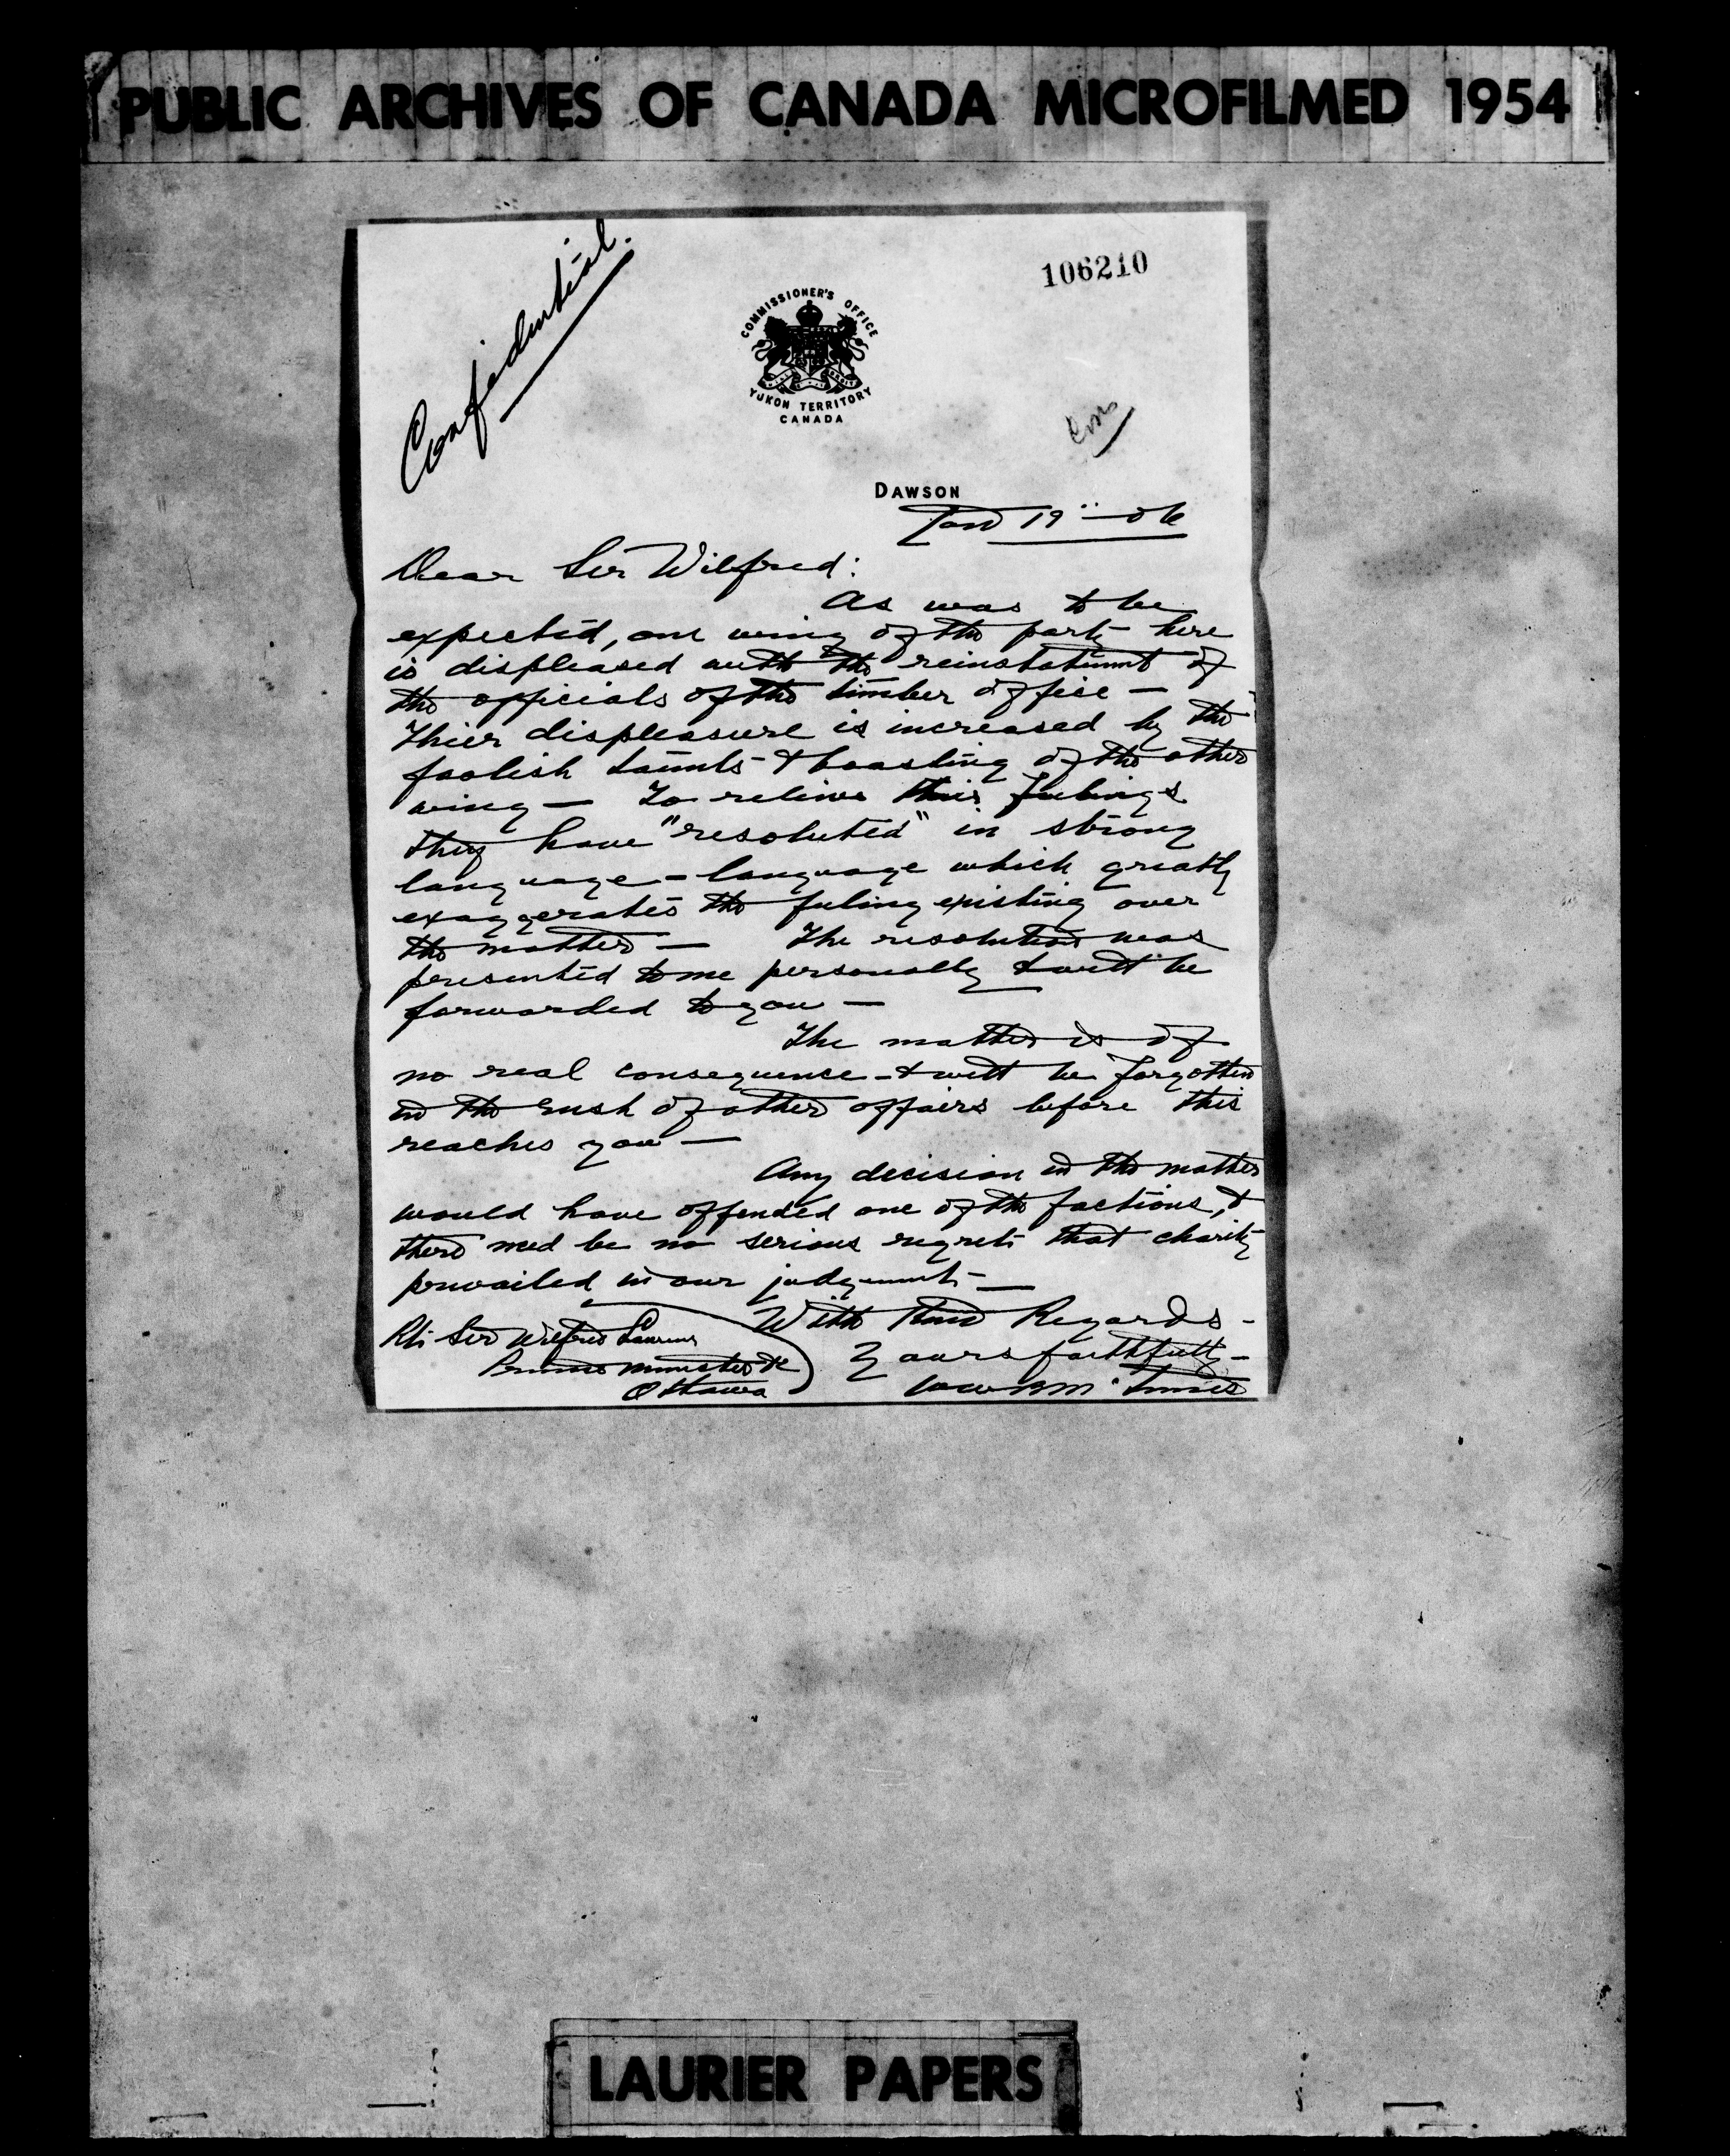 PUBLIC ARCHIVES OF CANADA MICROFILMED 1954
Confidential.
106210
COMMISSIONER'S OFFICE
YUKON TERRITORY
CANADA
DAWSON
Jan 19" - 06
Dear Sir Wilfred:
As was to be
expected, one wing of the party here
is displeased with the reinstatement of
the officials of the timber office —
Thier displeasure is increased by the
foolish taunts & boasting of the other
wing — To relieve thier feelings
they have "resoluted" in strong
language - language which greatly
exaggerates the feeling existing over
the matter — The resolution was
presented to me personally & will be
forwarded to you —
The matter is of
no real consequence - & will be forgotten
in the rush of other affairs before this
reaches you —
Any decision in the matter
would have offended one of the factions, &
there need be no serious regrets that charity
prevailed in our judgement —
With Kind Regards -
Yours faithfully -
WWB McInnes
Rt Sir Wilfred Laurier
Prime Minister &c
Ottawa
LAURIER PAPERS